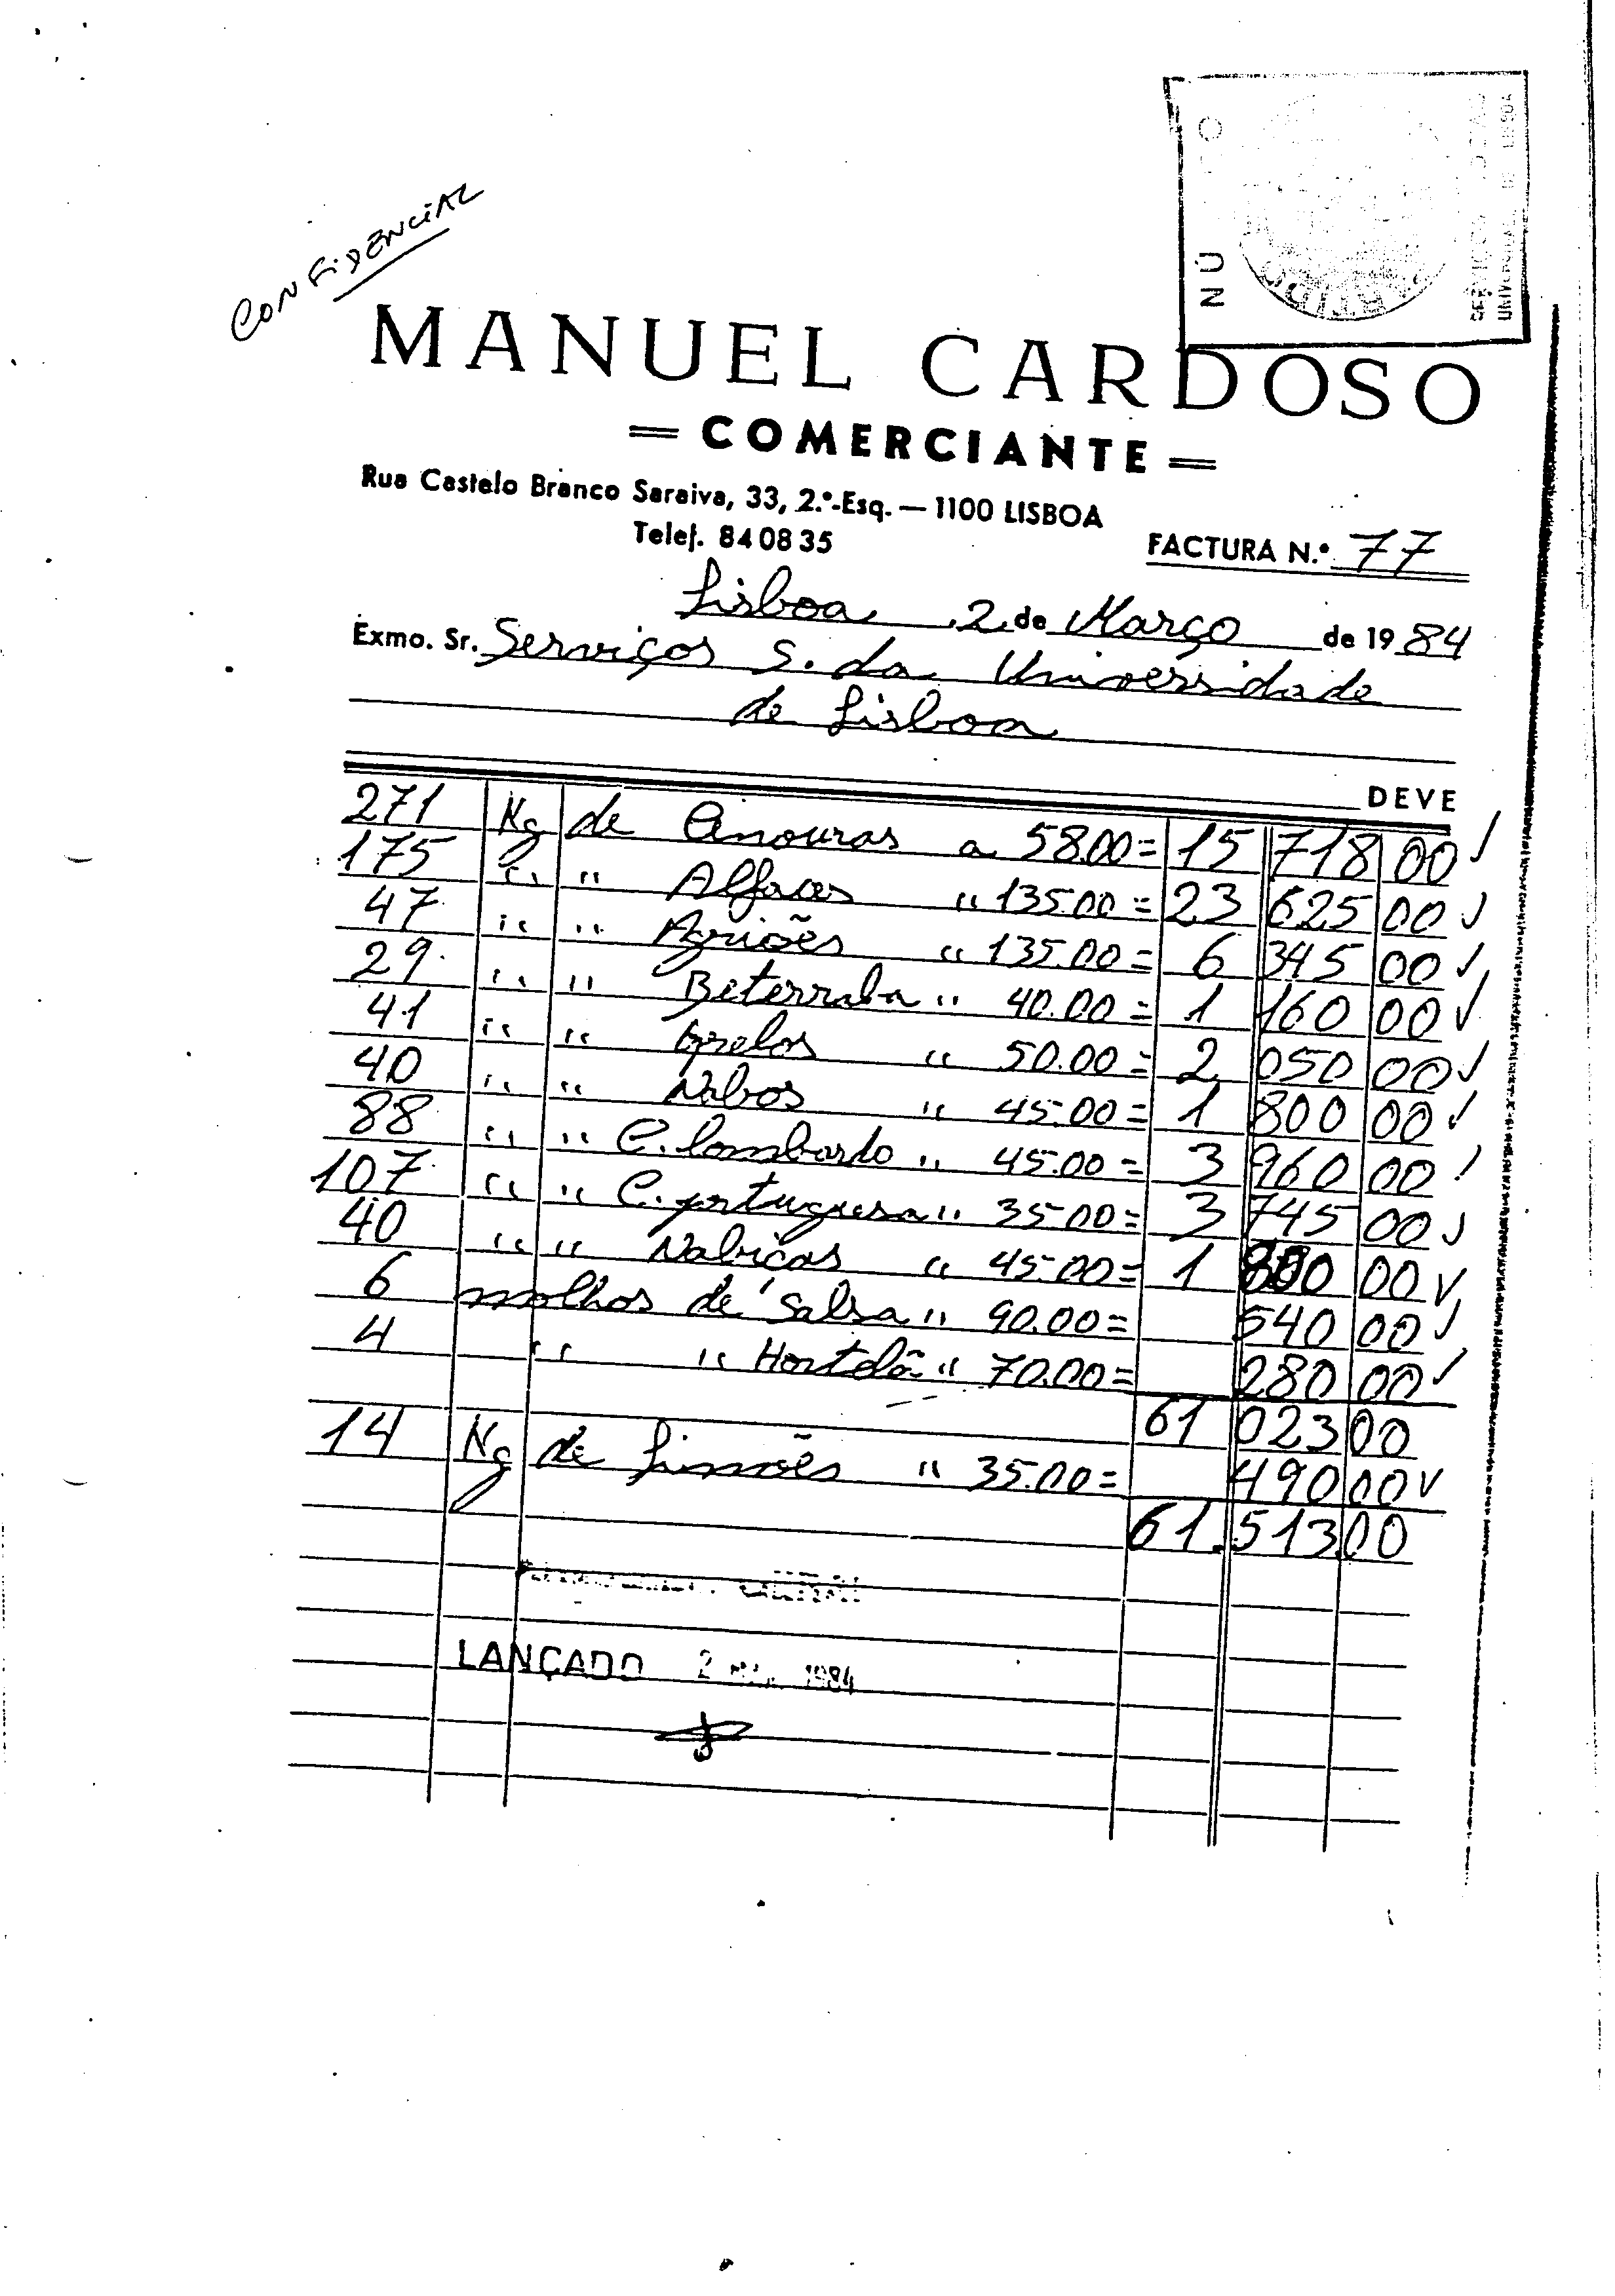 CONFIDENCIAL
MANUEL CARDOSO
= COMERCIANTE =
Rua Castelo Branco Saraiva, 33, 2.º-Esq. — 1100 LISBOA
Telef. 84 08 35
FACTURA N.º 77
Lisboa, 2 de Março de 1984
Exmo. Sr. Serviços S. da Universidade
de Lisboa
DEVE
271 Kg de Cenouras a 58.00 = 15 718 00 ✓
175 " " Alfaces " 135.00 = 23 625 00 ✓
47 " " Agriões " 135.00 = 6 345 00 ✓
29 " " Beterraba " 40.00 = 1 160 00 ✓
41 " " Grelos " 50.00 = 2 050 00 ✓
40 " " Nabos " 45.00 = 1 800 00 ✓
88 " " C. lombardo " 45.00 = 3 960 00 ✓
107 " " C. portuguesa " 35.00 = 3 745 00 ✓
40 " " Nabiças " 45.00 = 1 800 00 ✓
6 molhos de Salsa " 90.00 = 540 00 ✓
4 " " Hortelã " 70.00 = 280 00 ✓
61 023 00
14 Kg de Limões " 35.00 = 490 00 ✓
61.513.00
LANÇADO 2 1984